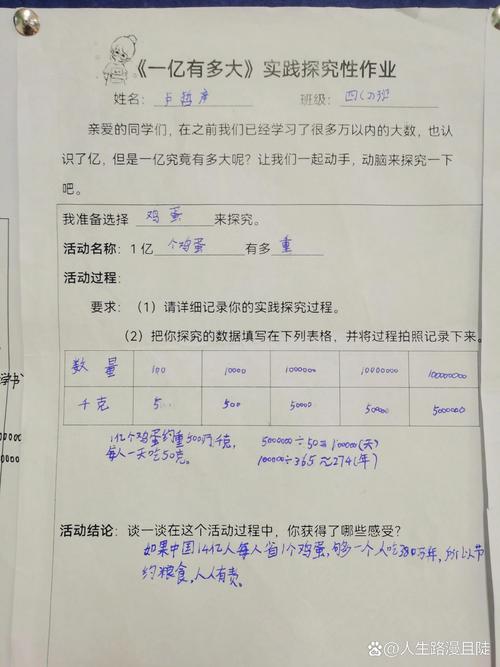 《一亿有多大》实践探究性作业
姓名：卢哲彦 班级：四(2)班
亲爱的同学们，在之前我们已经学习了很多万以内的大数，也认
识了亿，但是一亿究竟有多大呢？让我们一起动手，动脑来探究一下
吧。
我准备选择 鸡蛋 来探究。
活动名称：1亿 个鸡蛋 有多 重
活动过程：
要求：（1）请详细记录你的实践探究过程。
（2）把你探究的数据填写在下列表格，并将过程拍照记录下来。
数量 100 10000 1000000 10000000 100000000
千克 5 500 50000 50000 5000000
1亿个鸡蛋约重500万千克， 5000000÷50=100000(天)
每人一天吃50克。 100000÷365≈274(年)
活动结论：谈一谈在这个活动过程中，你获得了哪些感受？
如果中国14亿人每人省1个鸡蛋，够多一个人吃380万年，所以节
约粮食，人人有责。
学书
0000
0000
@人生路漫且陡